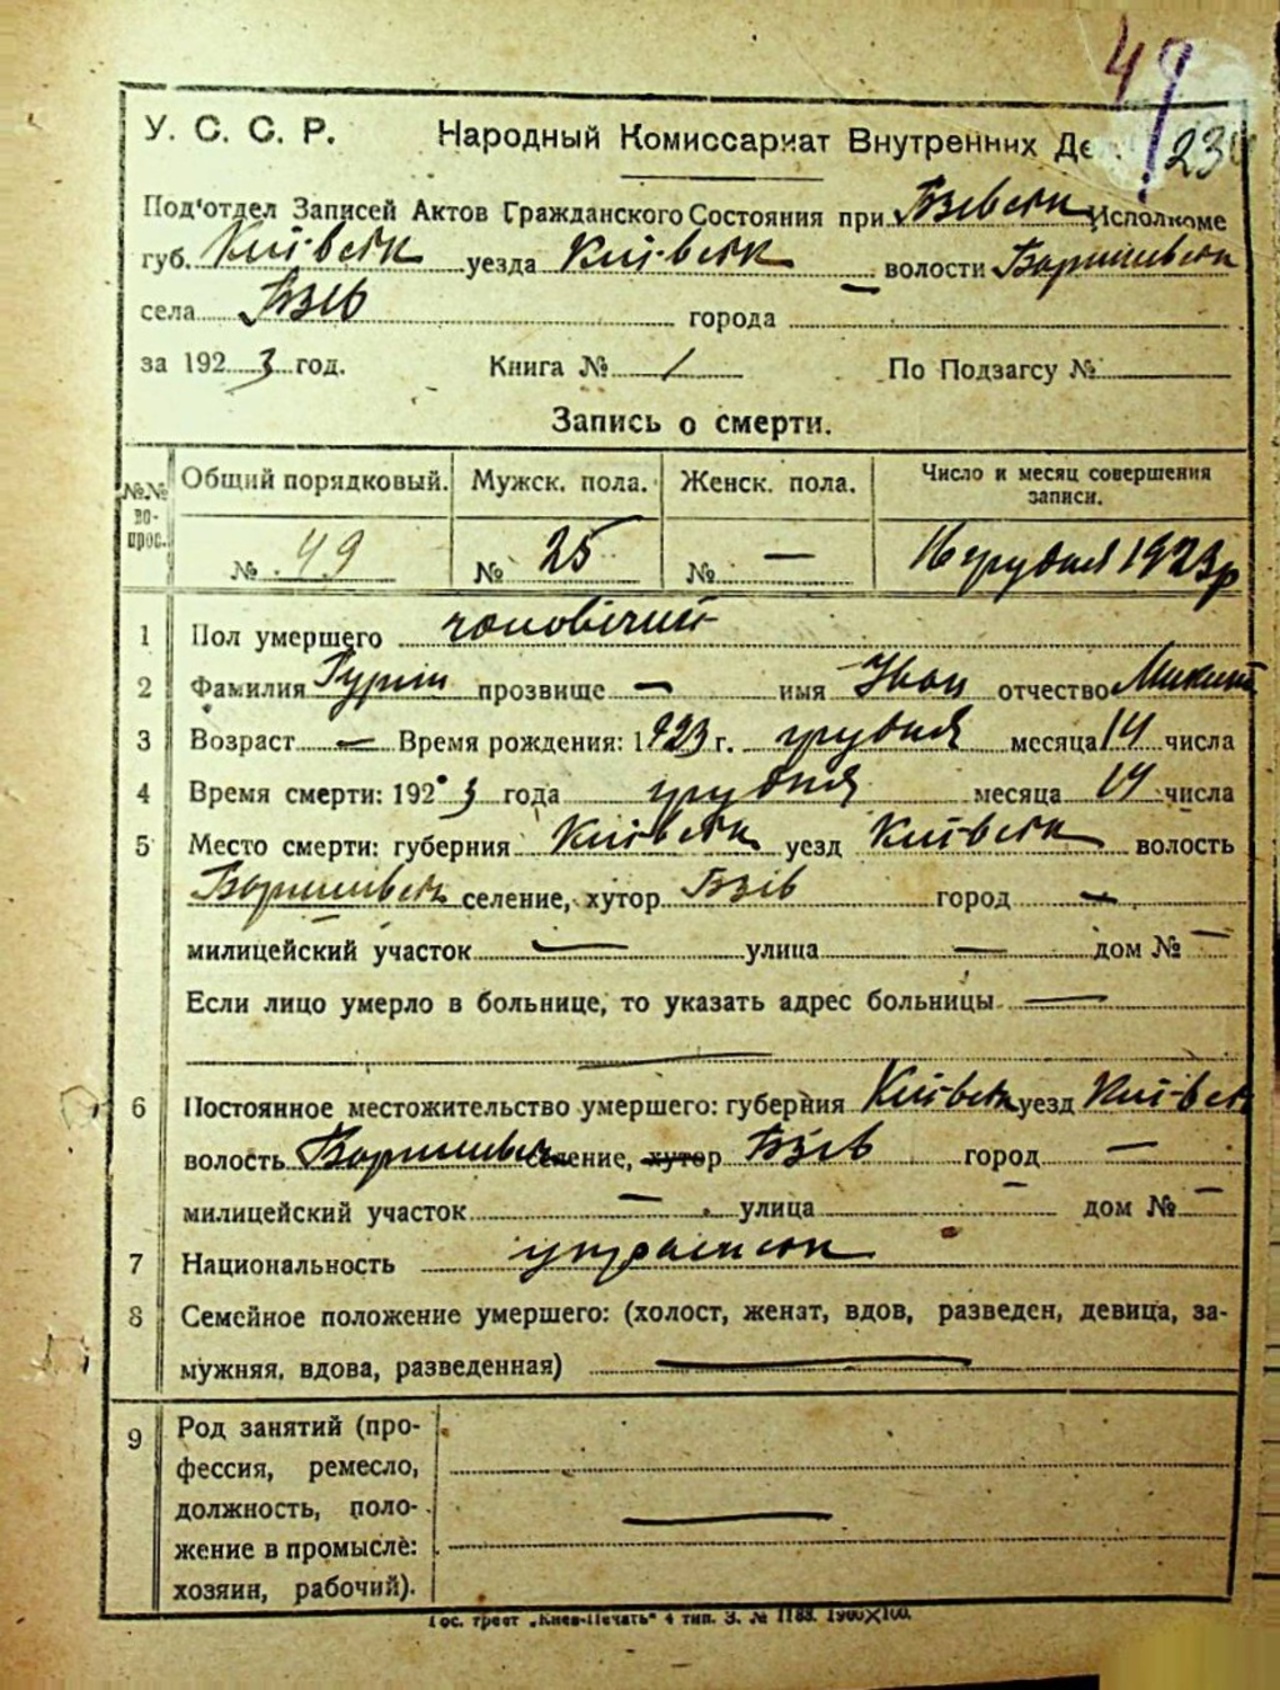 49
У. С. С. Р. Народный Комиссариат Внутренних Де 23
Под'отдел Записей Актов Гражданского Состояния при Бзівськ Исполкоме
губ. Київськ уезда Київськ волости Баришівськ
села Бзів города
за 1923 год. Книга № 1 По Подзагсу №
Запись о смерти.
№№ во-прос. Общий порядковый. Мужск. пола. Женск. пола. Число и месяц совершения записи.
№ 49 № 25 № — 16 грудня 1923р
1 Пол умершего чоловічий
2 Фамилия прозвище — имя Іван отчество Микит
3 Возраст — Время рождения: 1923 г. грудня месяца 14 числа
4 Время смерти: 1923 года грудня месяца 14 числа
5 Место смерти: губерния Київськ уезд Київськ волость
Баришівськ селение, хутор Бзів город —
милицейский участок — улица — дом № —
Если лицо умерло в больнице, то указать адрес больницы —
6 Постоянное местожительство умершего: губерния Київськ уезд Київськ
волость Баришівськ селение, хутор Бзів город —
милицейский участок — улица — дом № —
7 Национальность українськ
8 Семейное положение умершего: (холост, женат, вдов, разведен, девица, за-
мужняя, вдова, разведенная) —
9 Род занятий (про-
фессия, ремесло,
должность, поло-
жение в промысле:
хозяин, рабочий). —
Гос. трест „Киев-Печать" 4 тип. З. № 1188. 1900×100.